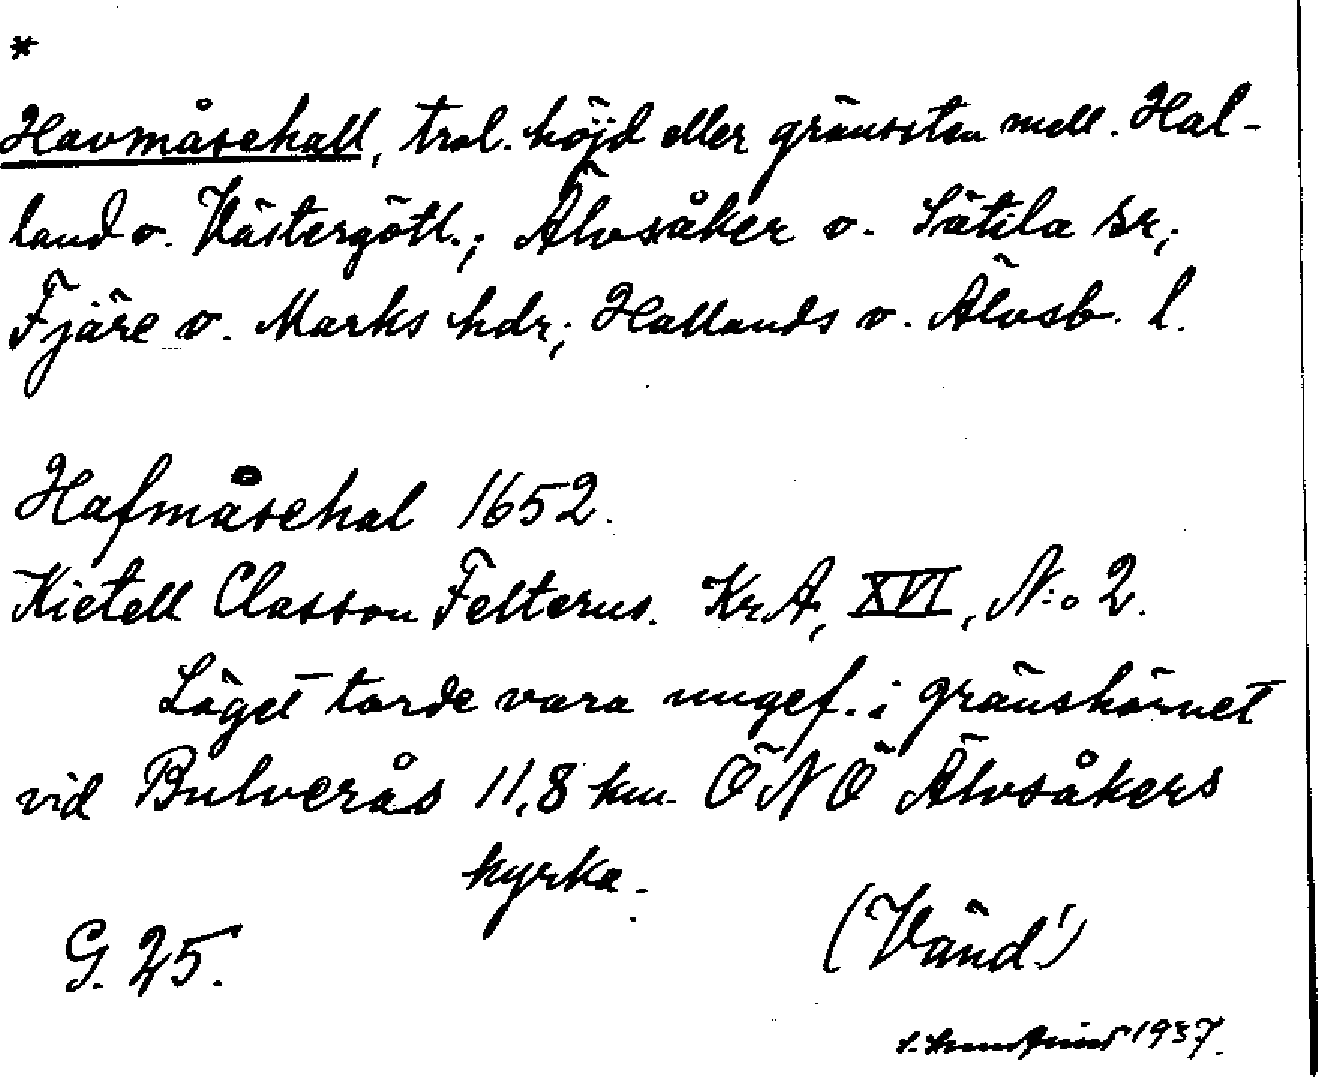 *
Havmåsehall, trol. höjd eller gränssten mell. Hal-
land o. Västergötl.; Älvsåker o. Sätila sr;
Fjäre o. Marks hdr; Hallands o. Älvsb. l.
Hafmåsehal 1652.
Kietell Classon Felterus. KrA, XVI, N:o 2.
Läget torde vara ungef. i gränshörnet
vid Bulverås 11,8 km. ÖNÖ Älvsåkers
kyrka.
G. 25.
(Vänd!)
1937.